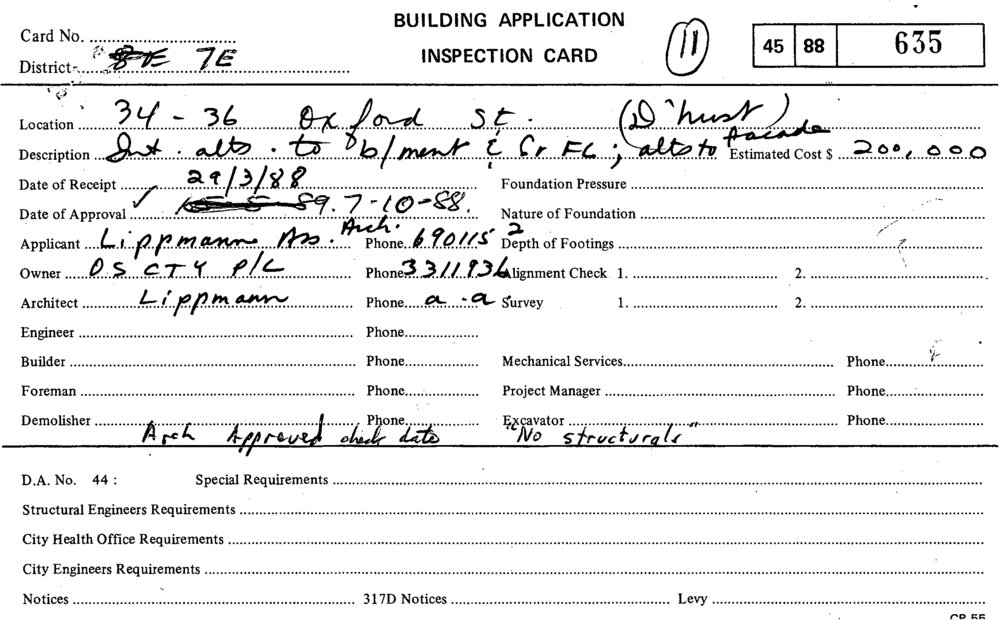 BUILDING APPLICATION
INSPECTION CARD
Card No.
District 7E
11
45 88 635
Location 34 - 36 Oxford St. (D'hurst)
Description Int. alts. to b/ment & Gr FL; alts to facade Estimated Cost $ 200,000
Date of Receipt 29/3/88 Foundation Pressure
Date of Approval ✓ 7-10-88. Nature of Foundation
Applicant Lippmann Ass. Arch. Phone 6901152 Depth of Footings
Owner OS CTY P/L Phone 3311936 Alignment Check 1. 2.
Architect Lippmann Phone a.a. Survey 1. 2.
Engineer Phone
Builder Phone Mechanical Services Phone
Foreman Phone Project Manager Phone
Demolisher Phone Excavator Phone
Arch Approved check date "No structurals"
D.A. No. 44 : Special Requirements
Structural Engineers Requirements
City Health Office Requirements
City Engineers Requirements
Notices 317D Notices Levy
CP 55